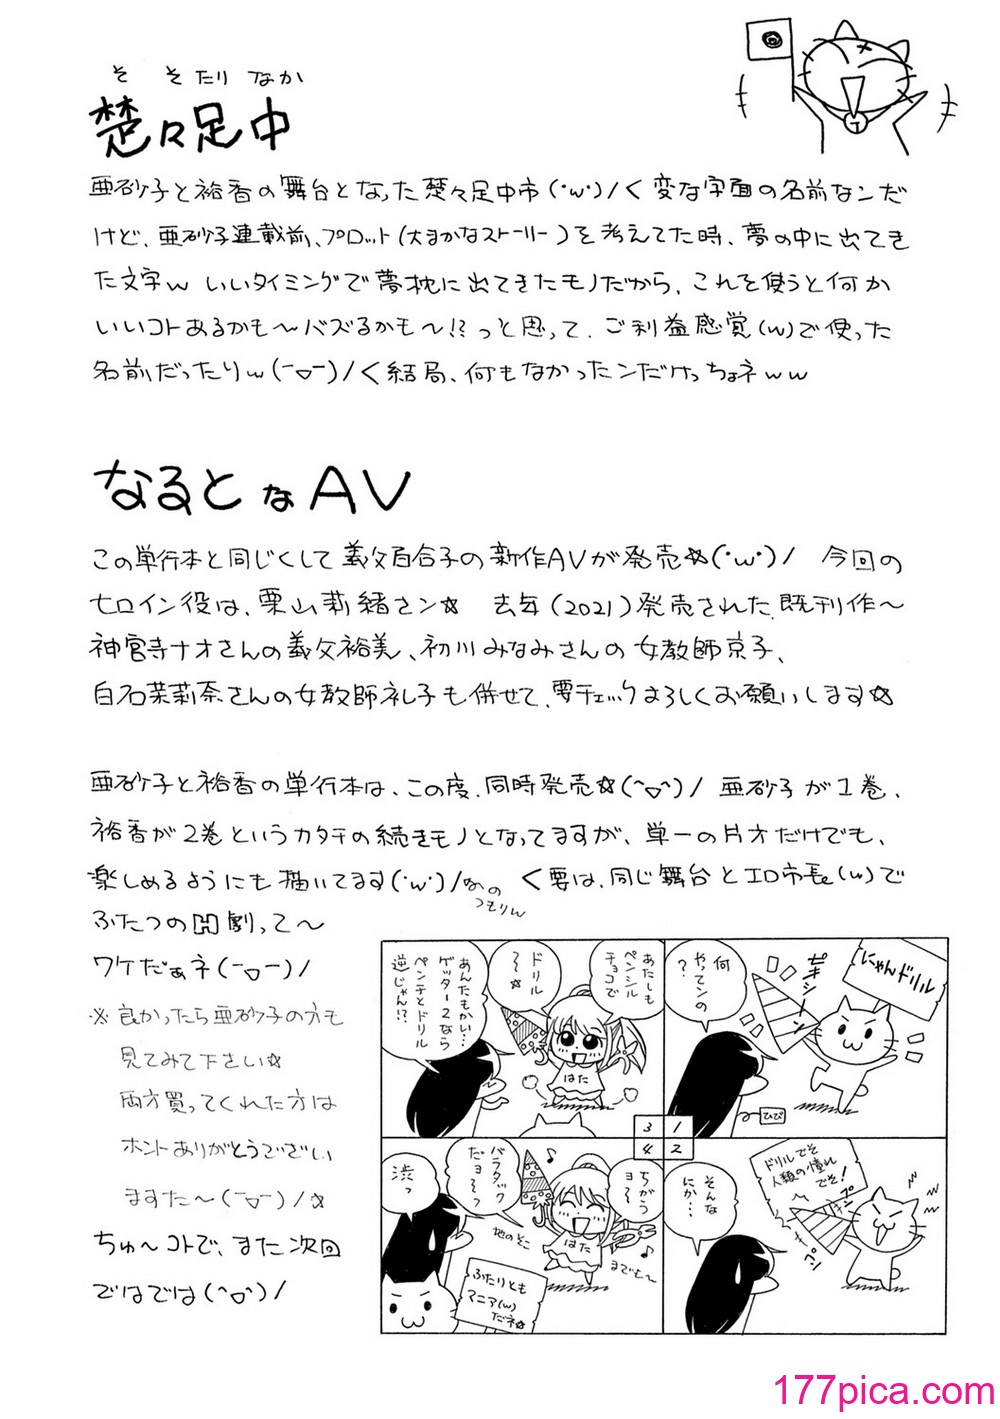 そ そたり なか
楚々足中
亜砂子と裕香の舞台となった楚々足中市(・w・)/く変な字面の名前なンだ
けど、亜砂子連載前、プロット(大まかなストーリー)を考えてた時、夢の中に出てき
た文字w いいタイミングで夢枕に出てきたモノだから、これを使うと何か
いいコトあるかも〜バズるかも〜!?っと思って、ご利益感覚(w)で使った
名前だったりw(ー▽ー)/く結局、何もなかったンだけっちょネww
なるとなAV
この単行本と同じくして義父百合子の新作AVが発売☆(・w・)/ 今回の
ヒロイン役は、栗山莉緒さン☆ 去年(2021)発売された、既刊作〜
神宮寺ナオさんの義父裕美、初川みなみさんの女教師京子、
白石茉莉奈さんの女教師礼子も併せて、要チェックよろしくお願いします☆
亜砂子と裕香の単行本は、この度、同時発売☆(^▽^)/ 亜砂子が1巻、
裕香が2巻というカタチの続きモノとなってますが、単一の片方だけでも、
楽しめるようにも描いてます(・w・)/なの
つもりw
く要は、同じ舞台とエロ市長(w)で
ふたつのH劇って〜
ワケだぁネ(ー▽ー)/
※良かったら亜砂子の方も
見てみて下さい☆
両方買ってくれた方は
ホントありがとうござい
ますた〜(ー▽ー)/☆
ちゅ〜コトで、また次回
ではでは(^▽^)/
にゃんドリル
ギュイーン
何
やってンの
?
ひひ
ドリルでそ
人類の憧れ
でそ!
そんな
にか…
あたしも
ペンシル
チョコで
ドリル
〜☆
あんたもかい…
ゲッター2なら
ペンチとドリル
逆じゃん!?
はた
3 1
4 2
ちがう
ヨ〜う
バラタック
だヨ〜う
はた
地のそこ
までも〜
渋っ
ふたりとも
マニア(w)
だネ☆
177pica.com